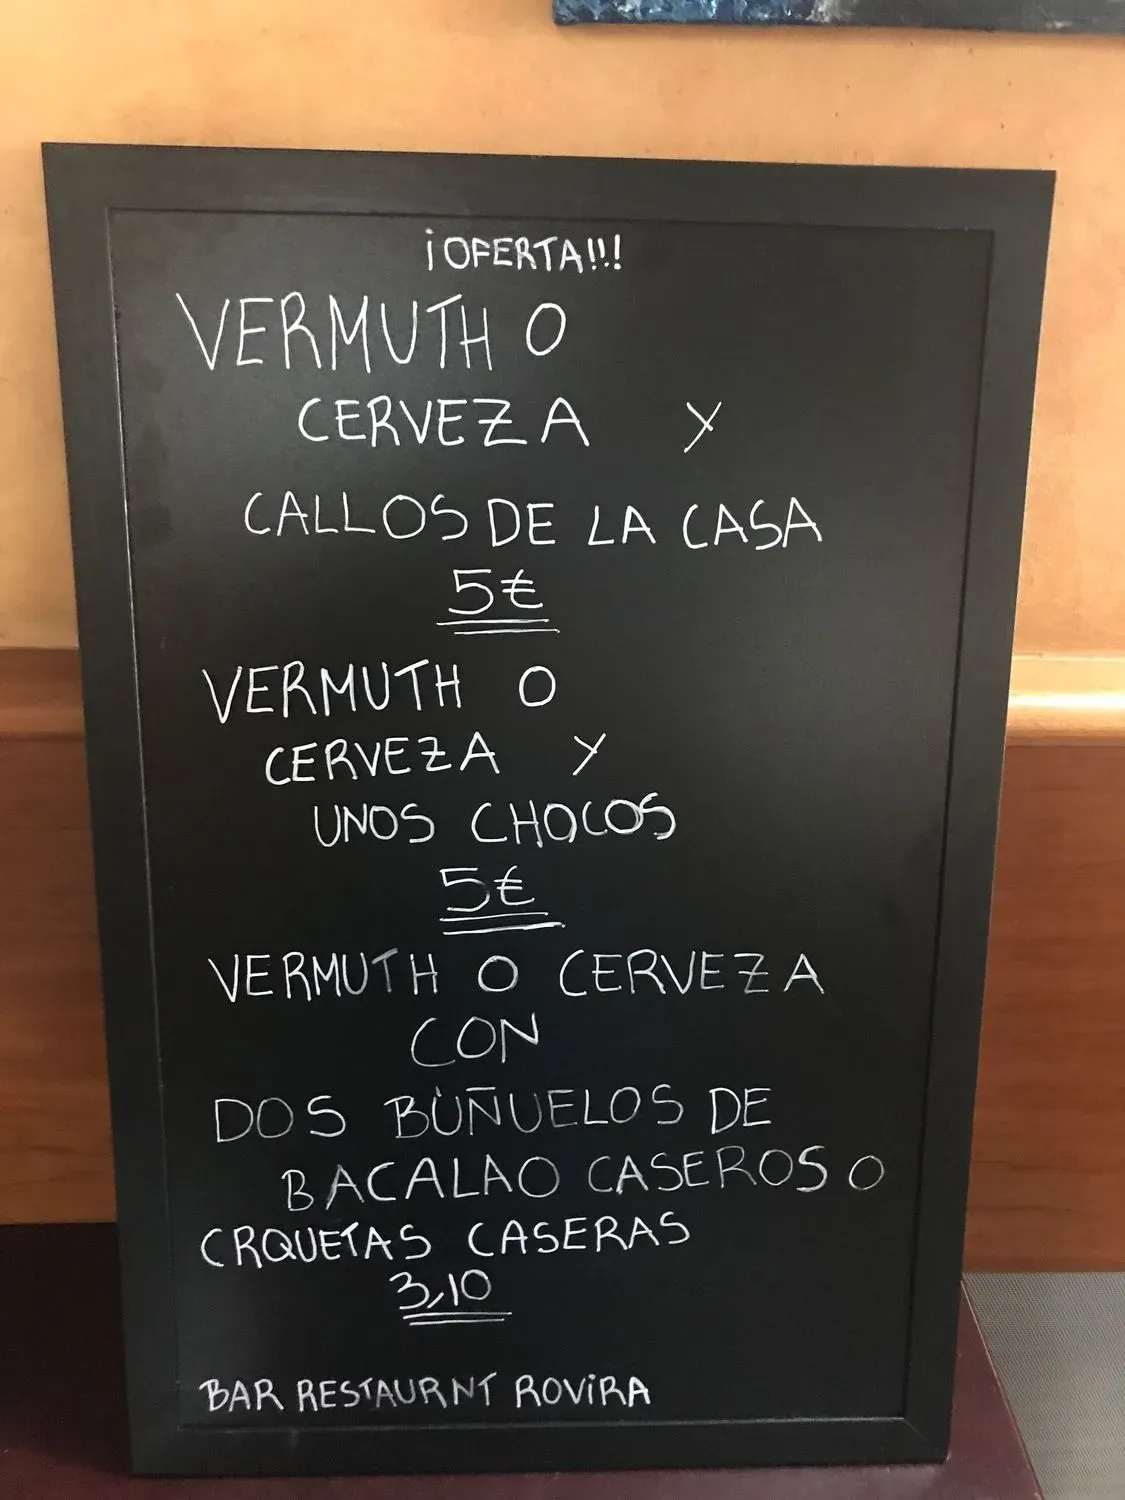 ¡OFERTA!!!
VERMUTH O
CERVEZA Y
CALLOS DE LA CASA
5€
VERMUTH O
CERVEZA Y
UNOS CHOCOS
5€
VERMUTH O CERVEZA
CON
DOS BUÑUELOS DE
BACALAO CASEROS O
CRQUETAS CASERAS
3,10
BAR RESTAURNT ROVIRA